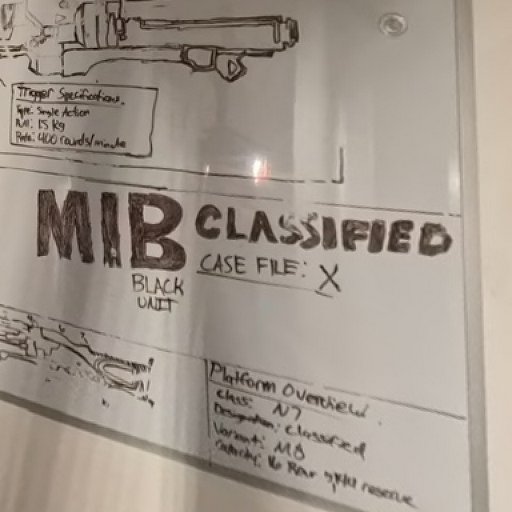 Trigger Specifications.
Type: Single Action
Pull: 15 Kg
Rate: 400 rounds/minute
MIB CLASSIFIED
CASE FILE: X
BLACK
UNIT
Platform Overview
Class: N7
Designation: Classified
Variant: M8
Capacity: 16 reserve